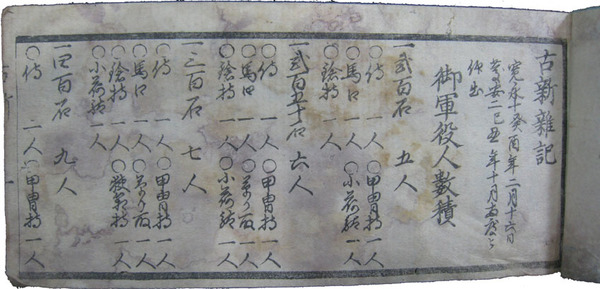 古新雜記
寛永十癸酉年二月十六日
慶安二己丑年十月両度ニ
仰出
御軍役人数積
一弐百石 五人
○侍 一人 ○甲冑持一人
○馬口 一人 ○小荷駄一人
○鎗持 一人
一弐百五十石 六人
○侍 一人 ○甲冑持一人
○馬口 一人 ○草り取一人
○鎗持 一人 ○小荷駄一人
一三百石 七人
○侍 一人 ○甲冑持一人
○馬口 一人 ○草り取一人
○鎗持 一人 ○挟箱持一人
○小荷駄 一人
一四百石 九人
○侍 二人 ○甲冑持一人